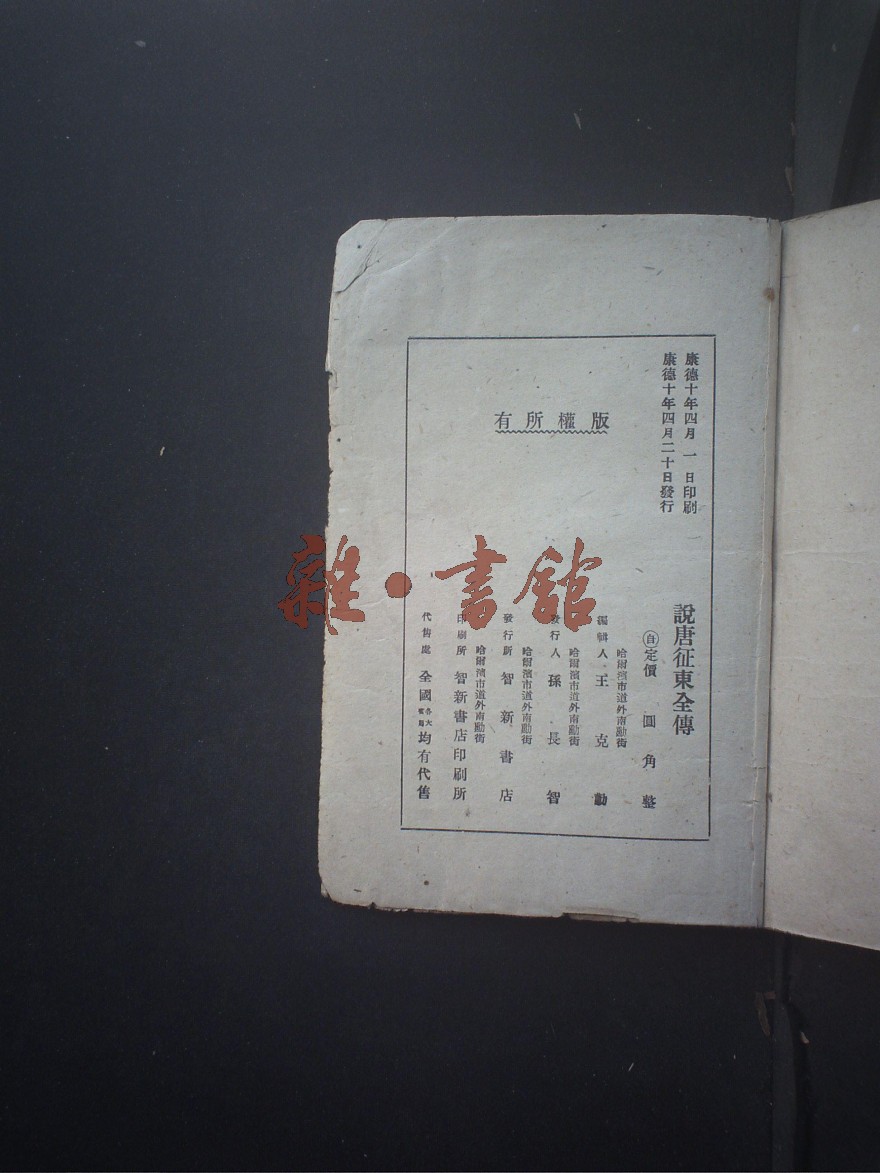 康德十年四月一日印刷
康德十年四月二十日發行
版權所有
說唐征東全傳
㊉定價 圓角整
哈爾濱市道外南勳街
編輯人 王克勤
哈爾濱市道外南勳街
發行人 孫長智
哈爾濱市道外南勳街
發行所 智新書店
哈爾濱市道外南勳街
印刷所 智新書店印刷所
代售處 全國各大書局均有代售
雜·書館